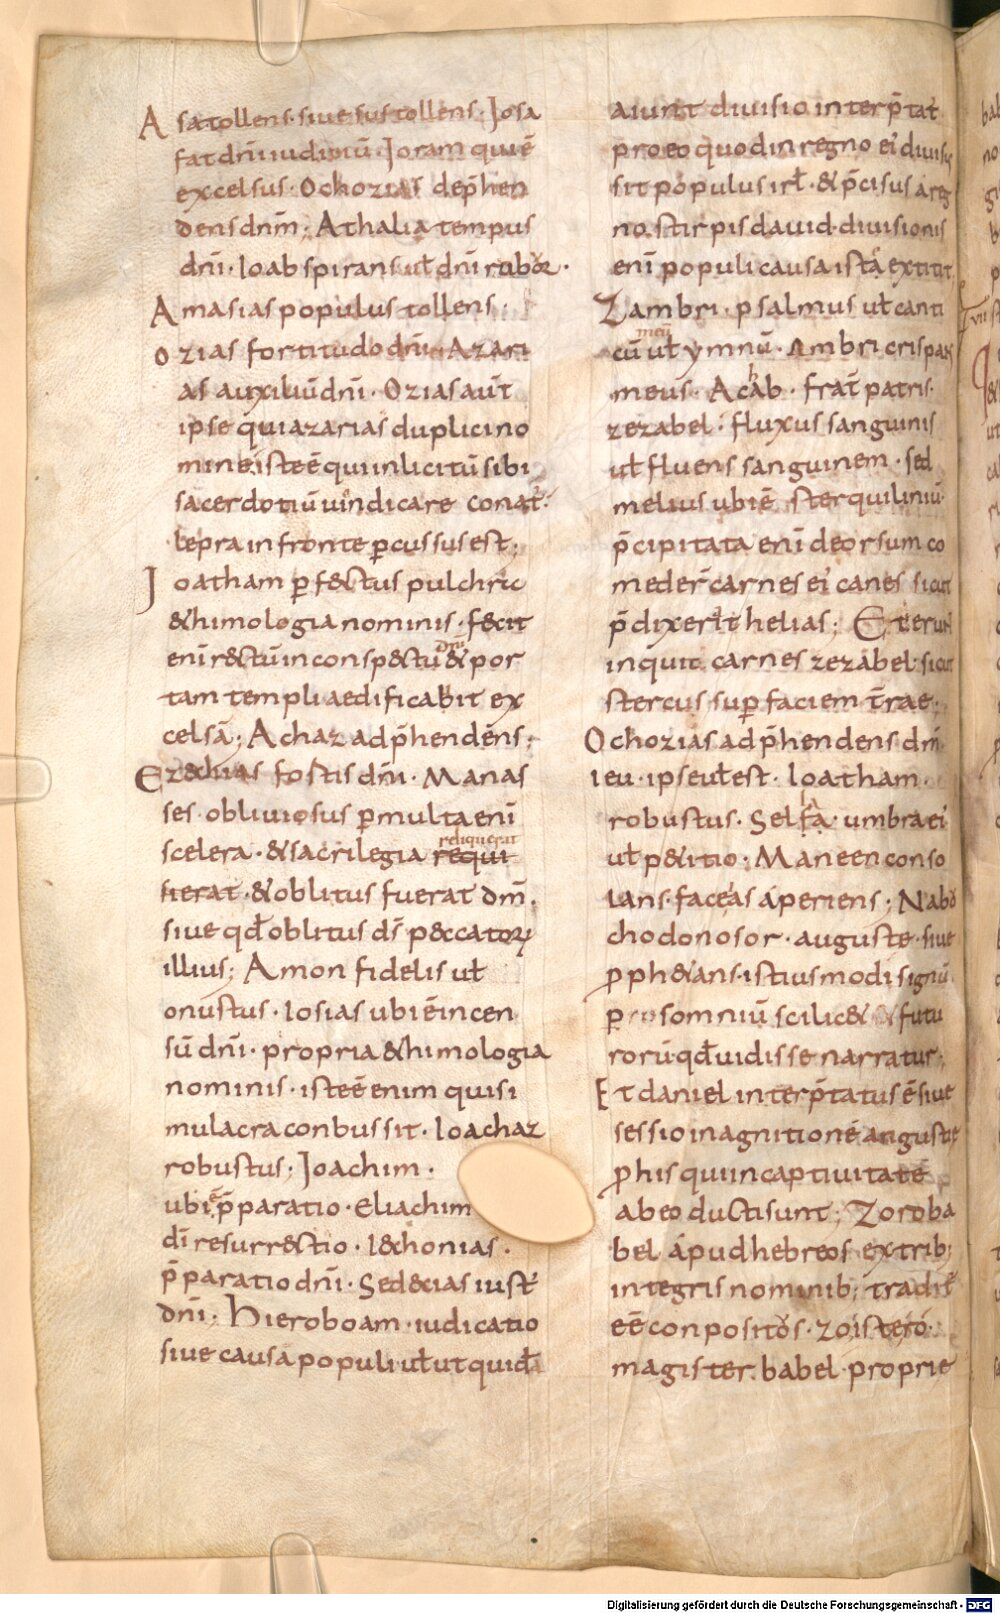 Asa tollens· siue sustollens· Iosa
fat dn̄i iudiciū· Ioram qui ē
excelsus· Ochozias dep̄hen
dens dn̄m· Athalia tempus
dn̄i· Ioab spirans ul̄ dn̄i rubor·
Amasias populus tollens·
Ozias fortitudo dn̄i· Azari
as auxiliū dn̄i· Ozias aut̄
ipse qui azarias duplici no
mine iste ē qui inlicitū sibi
sacerdotiū uindicare conat̄·
lepra in fronte ꝑcussus est;
Ioatham ꝑf&ctus pulchre
&himologia nominis· f&cit
eni r&ctū in consp&ctu dn̄i & por
tam templi aedificabit ex
celsā; Achaz adp̄hendens;
Ez&chias fostis dn̄i· Manas
ses· obliuiosus ꝑ multa eni
scelera· & sacrilegia requi
reliquerat
fierat· & oblitus fuerat dm̄·
siue qd̄ oblitus ds̄ p&ccatoꝝ
illius; Amon fidelis ul̄
onustus· Iosias ubi ē incen
sū dn̄i· propria &himologia
nominis· iste ē enim qui si
mulacra conbussit· Ioachaz
robustus· Ioachim·
ubi ē p̄paratio· Eliachim
dī resurr&ctio· I&chonias·
p̄paratio dn̄i· Sed&cias iust̄
dn̄i· Hieroboam· iudicatio
siue causa populi ul̄ ut quidā
aiunt diuisio interp̄tat̄
pro eo quod in regno ei diuisus
sit populus irl̄· & p̄cisus a reg
no stirpis dauid· diuisionis
eni populi causa ista extitit
Zambri· psalmus ul̄ canti
cū meū ul̄ ymnū· Ambri crispans
meus· Achab· frat̄ patris·
zezabel· fluxus sanguinis
ul̄ fluens sanguinem· sed
melius ubi ē sterquiliniū·
p̄cipitata eni deorsum co
meder̄ carnes ei canes sicut
p̄dixerit helias; Et erunt
inquit carnes zezabel· sicut
stercus suꝑ faciem t̄rae·
Ochozias adp̄hendens dn̄i·
ieu· ipse ul̄ est· Ioatham·
robustus· Selfa· umbra ei
ul̄ p&itio· Maneen conso
lans· faceas aperiens; Nabo
chodonosor· auguste· siue
ꝓph&ans· istiusmodi signū·
ꝑ somniū scilic& futu
rorū qd̄ uidisse narratur;
Et daniel interp̄tatus ē siue
sessio in agnitione angustie
ꝓphis qui in captiuitatē
ab eo ducti sunt; Zoroba
bel apud hebreos ex trib;
integris nominib; tradit̄
eē conpositos· zo iste ro·
magister· babel· proprie